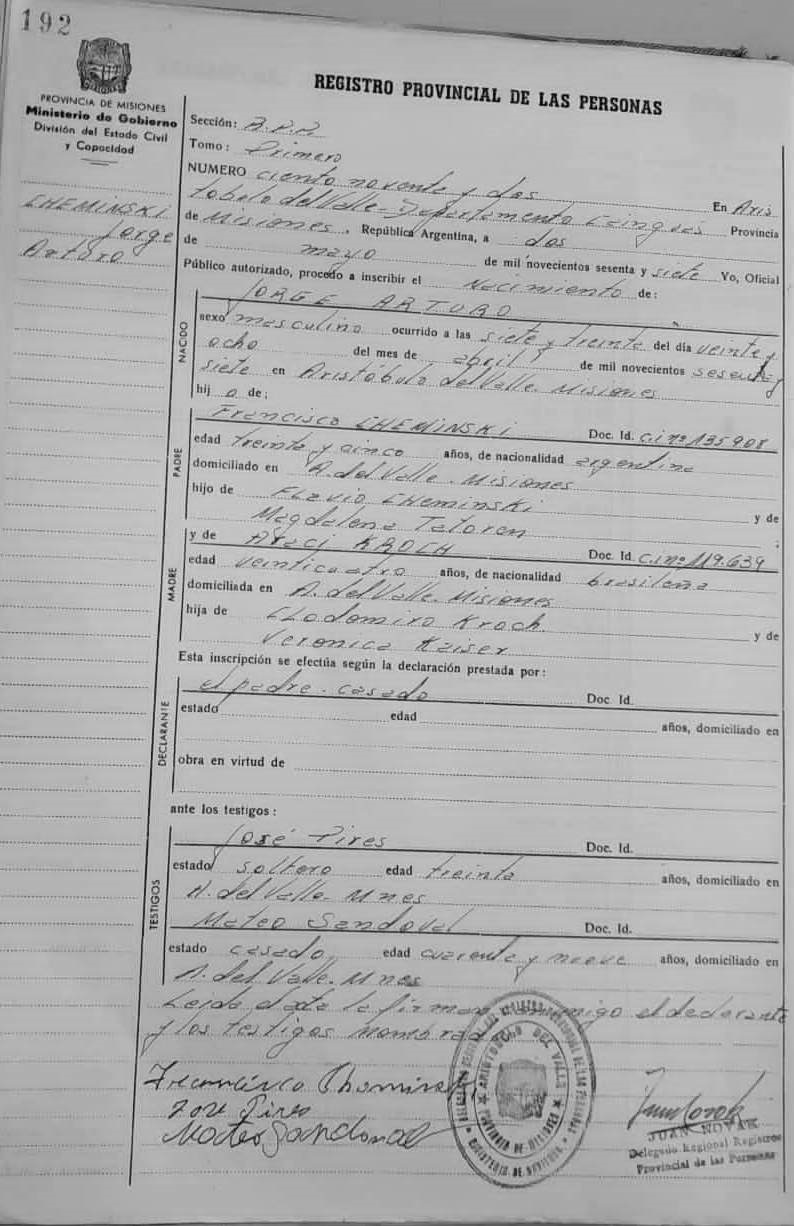 192
PROVINCIA DE MISIONES
Ministerio de Gobierno
División del Estado Civil
y Capacidad
CHEMINSKI
Jorge
Arturo
REGISTRO PROVINCIAL DE LAS PERSONAS
Sección:
Tomo: Primero
NUMERO ciento noventa y dos En Aris
tobulo del Valle - Departamento Cainguas Provincia
de Misiones, República Argentina, a dos
de mayo de mil novecientos sesenta y siete Yo, Oficial
Público autorizado, procedo a inscribir el Nacimiento de:
NACIDO
JORGE ARTURO
sexo masculino ocurrido a las siete y treinta del día veinte y
ocho del mes de abril de mil novecientos sesenta y
siete en Aristóbulo del Valle. Misiones
hij o de:
PADRE
Francisco CHEMINSKI Doc. Id. C.I. nº 135908
edad treinta y cinco años, de nacionalidad argentina
domiciliado en A. del Valle. Misiones
hijo de Flavio Cheminski y de
Magdalena Tatoren
MADRE
y de Araci KROCH Doc. Id. C.I. nº 119.639
edad veinticuatro años, de nacionalidad brasileña
domiciliada en A. del Valle. Misiones
hija de Clodomiro Kroch y de
Veronica Kaiser
Esta inscripción se efectúa según la declaración prestada por:
DECLARANTE
el padre. casado Doc. Id.
estado edad años, domiciliado en
obra en virtud de
ante los testigos:
TESTIGOS
José Pires Doc. Id.
estado soltero edad treinta años, domiciliado en
A. del Valle. Mnes
Mateo Sandoval Doc. Id.
estado casado edad cuarenta y nueve años, domiciliado en
A. del Valle. Mnes
Leida el acta la firman conmigo el declarante
y los testigos
Jose Pires
Mateo Sandoval
ARISTOBULO DEL VALLE
PROVINCIA DE MISIONES
MINISTERIO DE GOBIERNO
JUAN NOVAK
Delegado Regional Registro
Provincial de las Personas